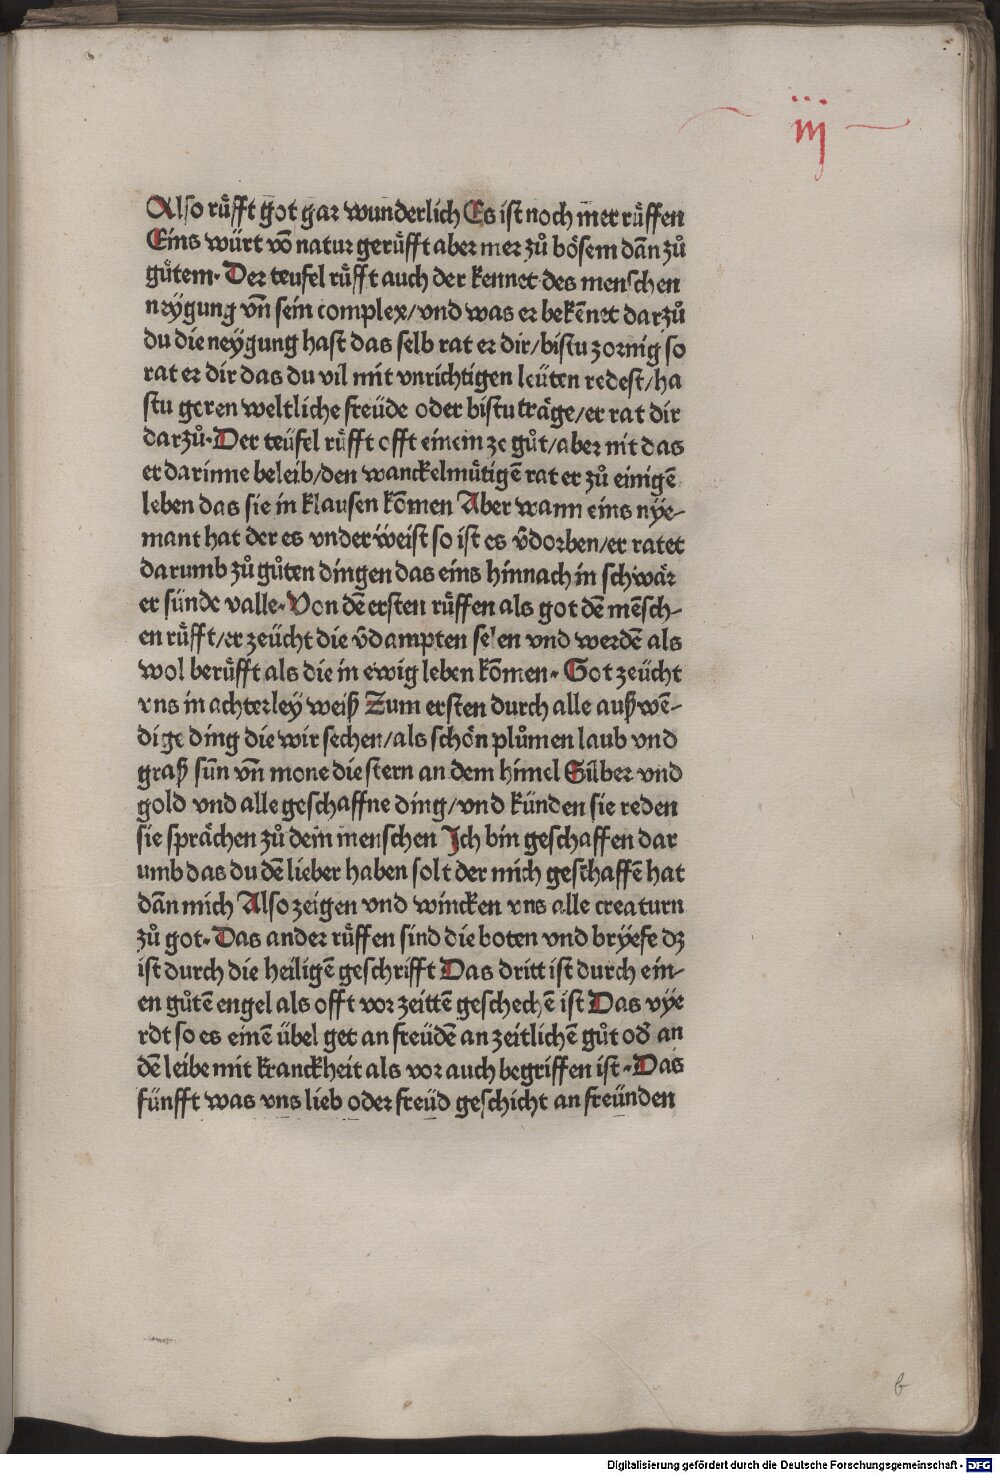 iij
Also rüfft got gar wunderlich Es ist noch mer rüffen
Eins würt vō natur gerüfft aber mer zů bösem dān zů
gůtem. Der teufel rüfft auch der kennet des menschen
neÿgung vn̄ sein complex/vnd was er bekēnet darzů
du die neÿgung hast das selb rat er dir/bistu zornig so
rat er dir das du vil mit vnrichtigen leüten redest/ha
stu geren weltliche freüde oder bistu träge/er rat dir
darzů. Der teüfel rüfft offt einem ze gůt/aber nit das
er darinne beleib/den wanckelmütigē rat er zů einigē
leben das sie in klausen kōmen Aber wann eins nÿe-
mant hat der es vnderweist so ist es v̄dorben/er ratet
darumb zů gůten dingen das eins hinnach in schwär
er sünde valle. Von dē ersten rüffen als got dē mēsch-
en rüfft/er zeücht die v̄dampten selen vnd werdē als
wol berüfft als die in ewig leben kōmen. Got zeücht
vns in achterleÿ weiß Zum ersten durch alle außwē-
dige ding die wir sechen/als schön plůmen laub vnd
graß sūn vn̄ mone die stern an dem himel Silber vnd
gold vnd alle geschaffne ding/vnd künden sie reden
sie sprächen zů dem menschen Ich bin geschaffen dar
umb das du dē lieber haben solt der mich geschaffē hat
dān mich Also zeigen vnd wincken vns alle creaturn
zů got. Das ander rüffen sind die boten vnd brÿefe dz
ist durch die heiligē geschrifft Das dritt ist durch ein-
en gůtē engel als offt vor zeittē geschechē ist Das vÿe
rdt so es einē übel get an freüdē an zeitlichē gůt od̄ an
dē leibe mit kranckheit als vor auch begriffen ist. Das
fünfft was vns lieb oder freüd geschicht an freünden
b
Digitalisierung gefördert durch die Deutsche Forschungsgemeinschaft - DFG